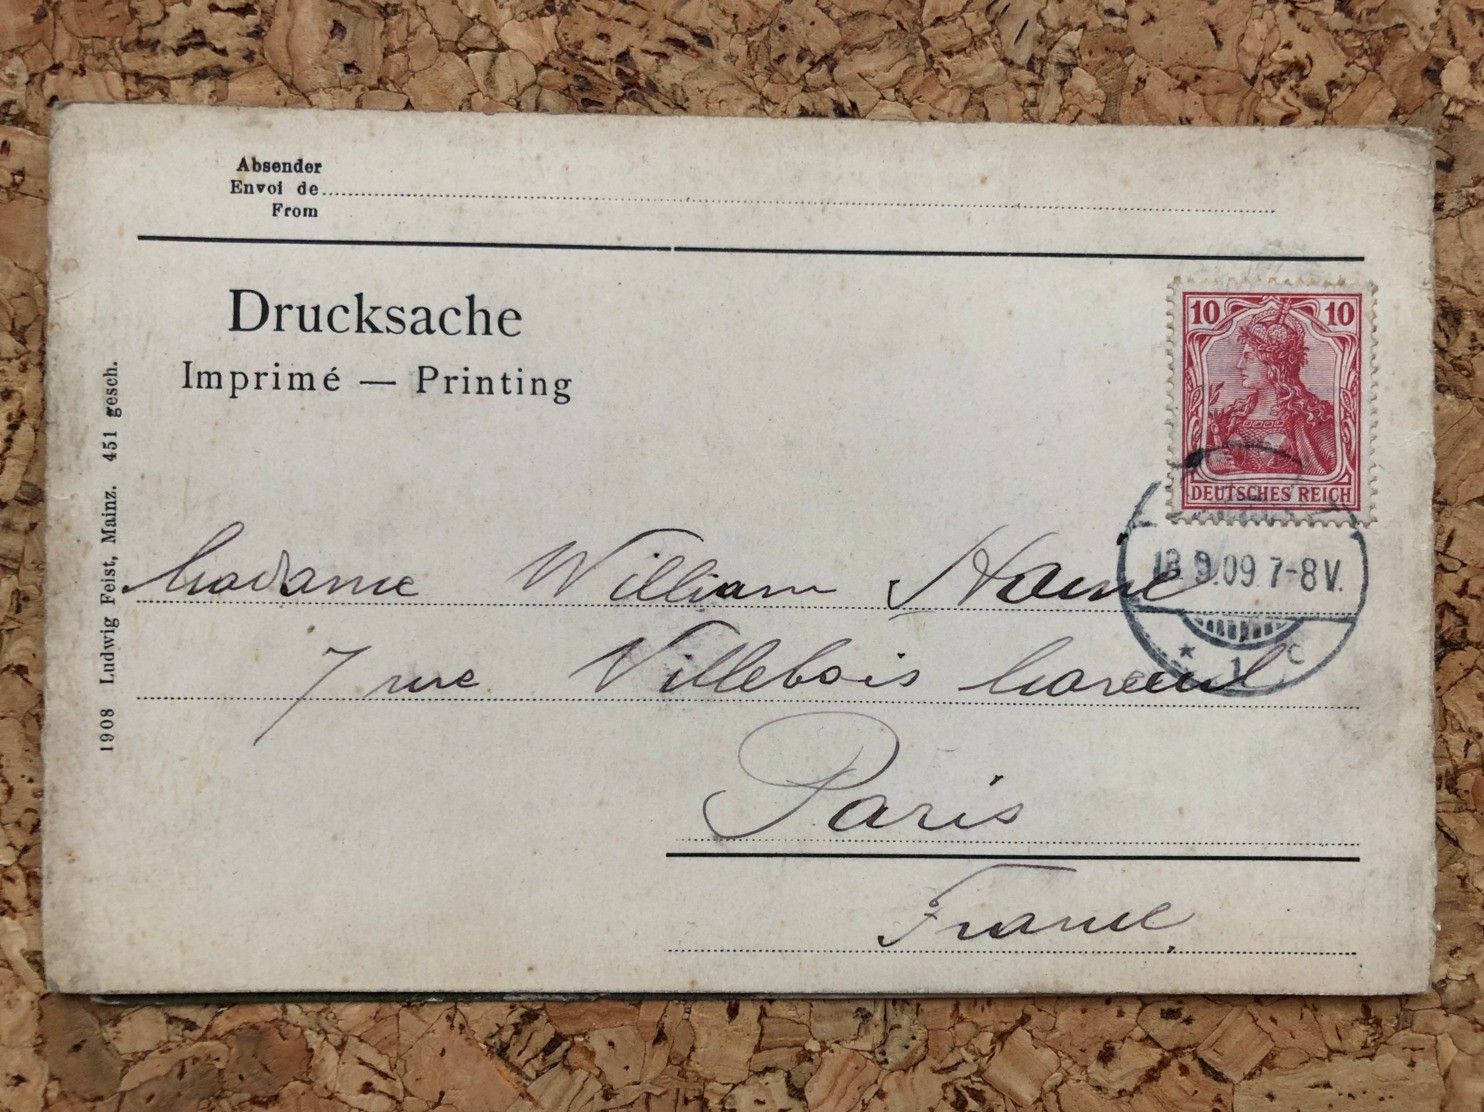 Absender
Envoi de
From
Drucksache
Imprimé — Printing
10 10
DEUTSCHES REICH
.9.09.7-8V.
* 1 c
Madame William
7 rue Villebois Mareuil
Paris
France
1908 Ludwig Feist, Mainz. 451 gesch.